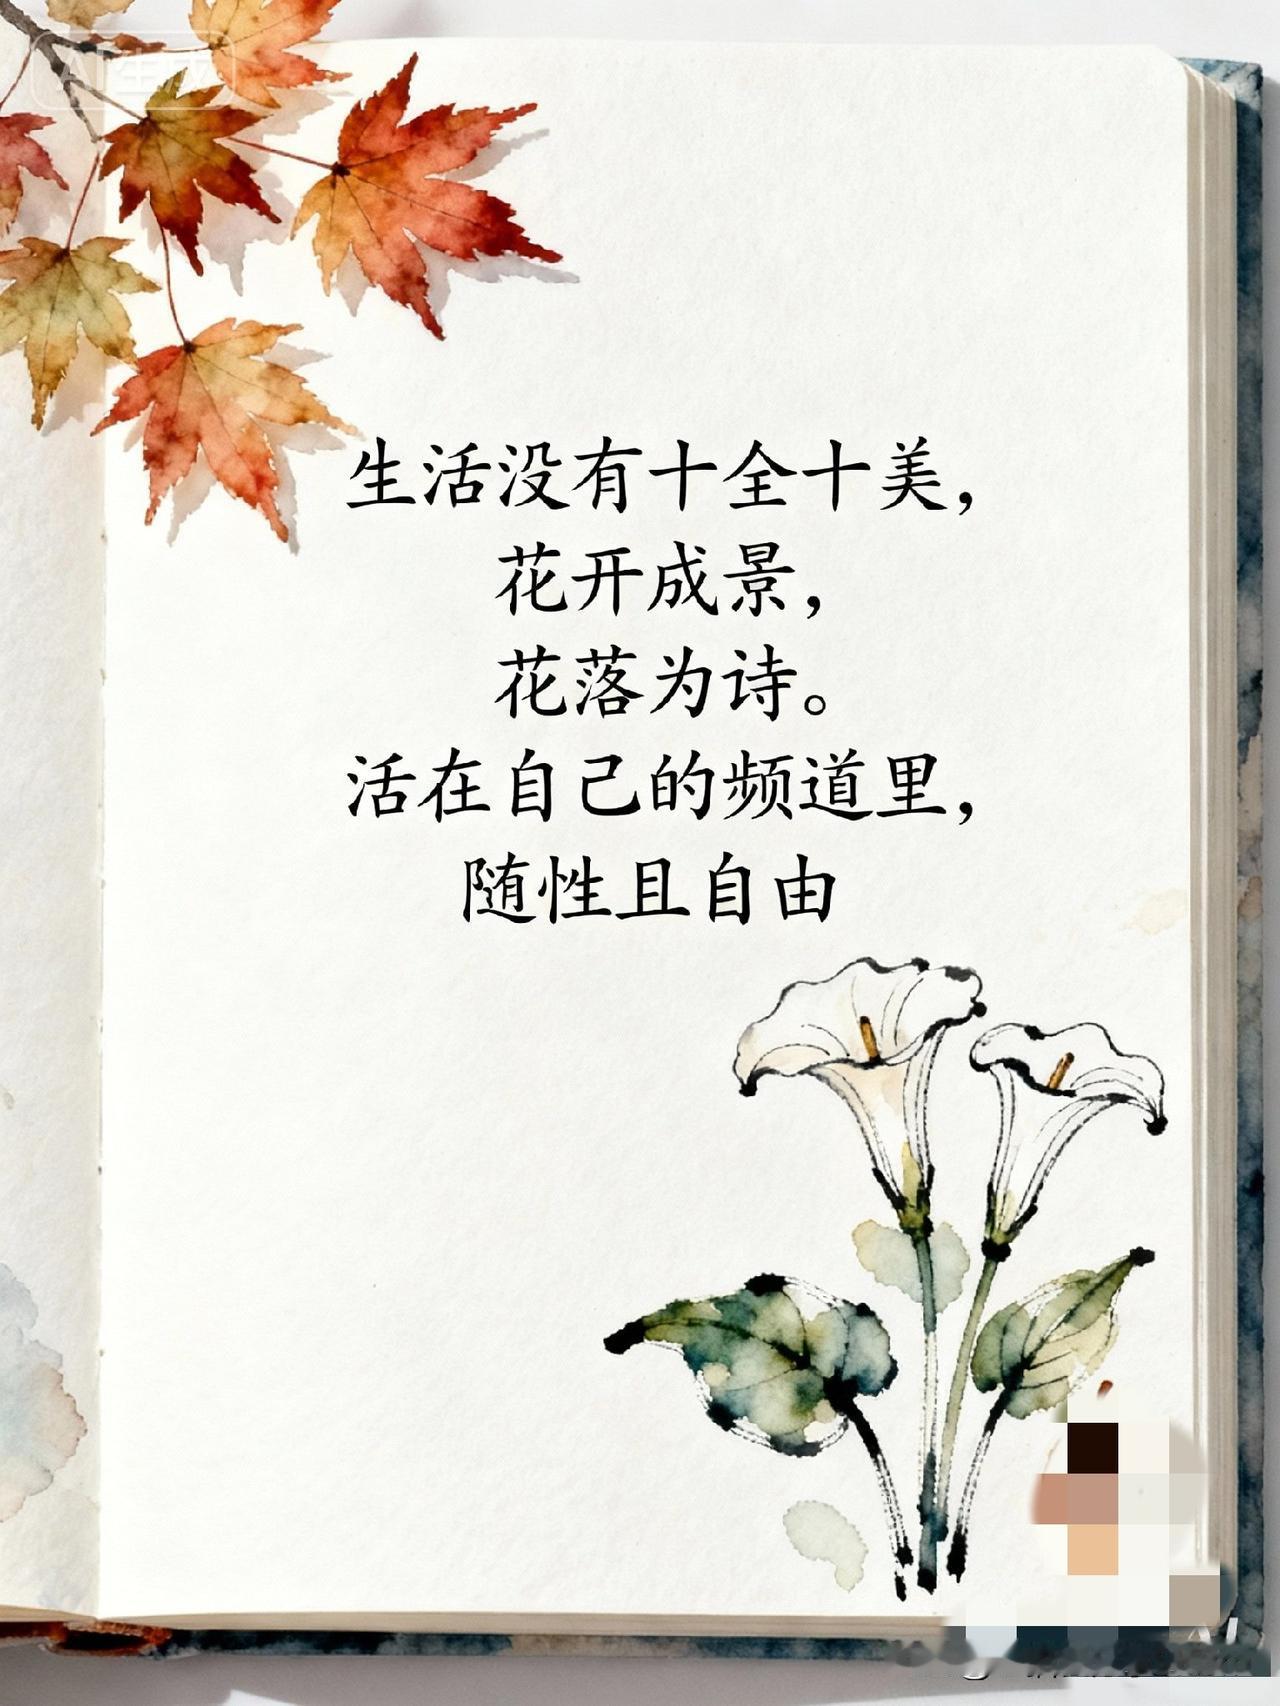 AI生成
生活没有十全十美，
花开成景，
花落为诗。
活在自己的频道里，
随性且自由